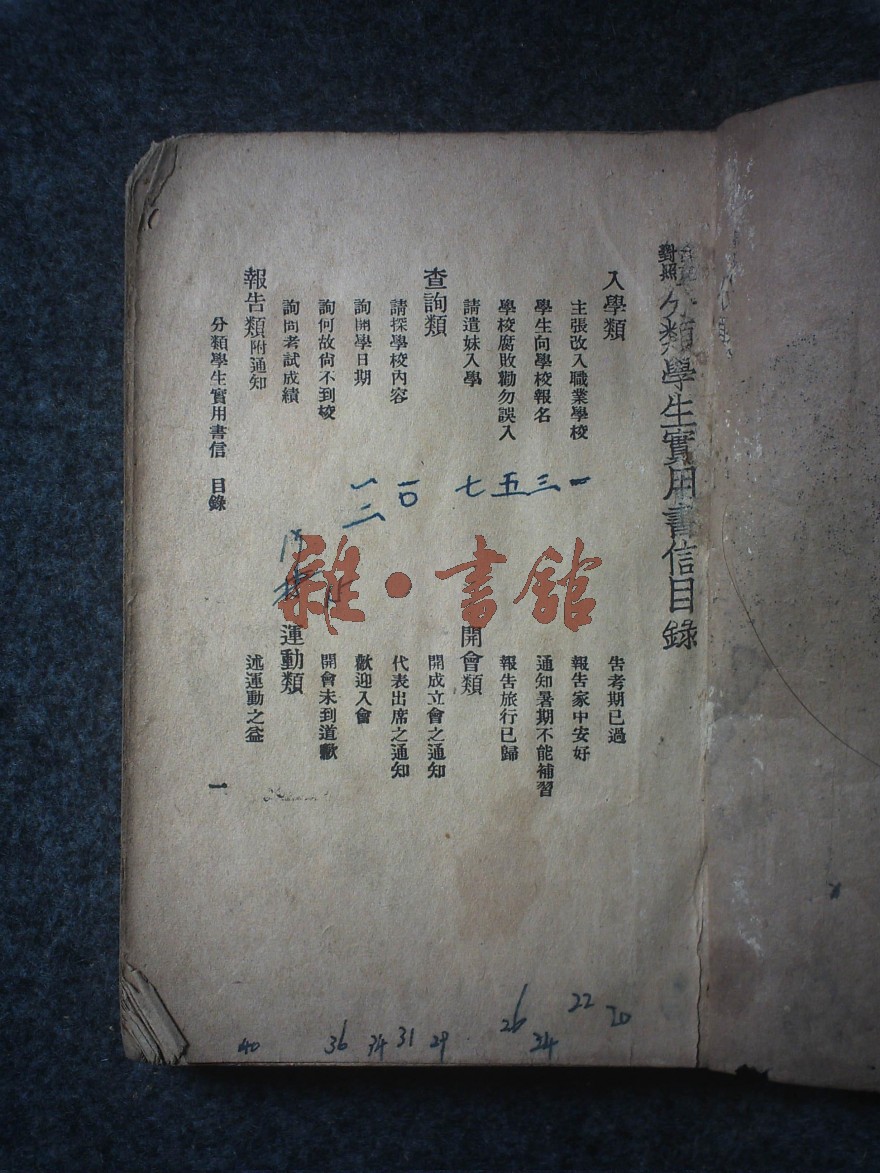 對照 分類學生實用書信目錄
入學類
主張改入職業學校 一
學生向學校報名 三
學校腐敗勸勿誤入 五
請遣妹入學 七
查詢類
請探學校內容 一〇
詢開學日期 一二
詢何故尙不到校
詢問考試成績
報告類附通知
告考期已過 20
報告家中安好 22
通知暑期不能補習 24
報告旅行已歸 26
開會類
開成立會之通知 29
代表出席之通知 31
歡迎入會 34
開會未到道歉 36
運動類
述運動之益 40
分類學生實用書信 目錄 一
雜·書館